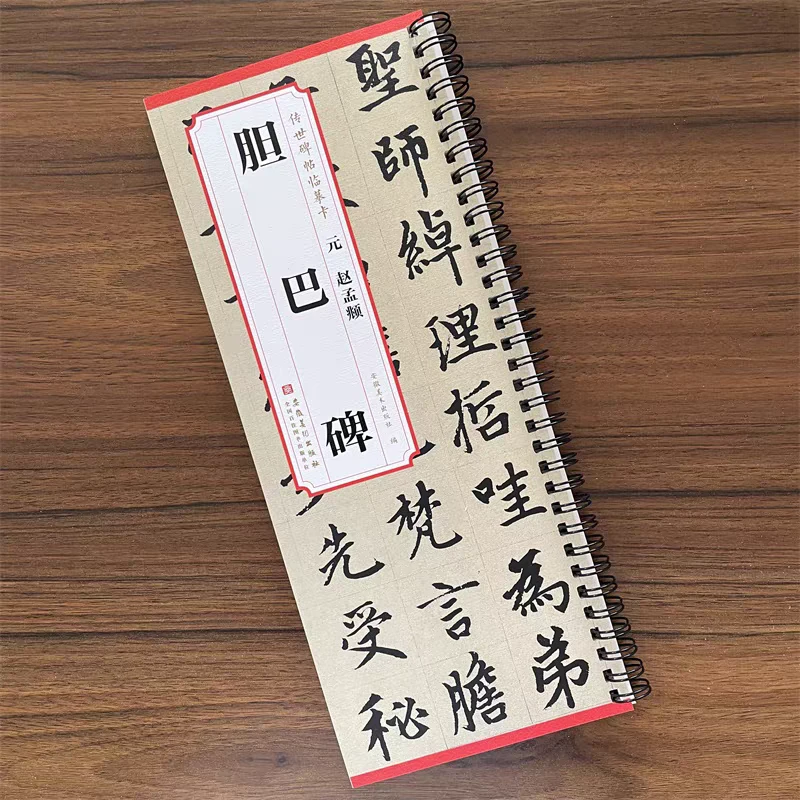 聖師綽理哲哇為弟
梵言膽
先受秘
传世碑帖临摹卡
元 赵孟頫
安徽美术出版社 编
胆巴碑
安徽美术出版社
全国百佳图书出版单位